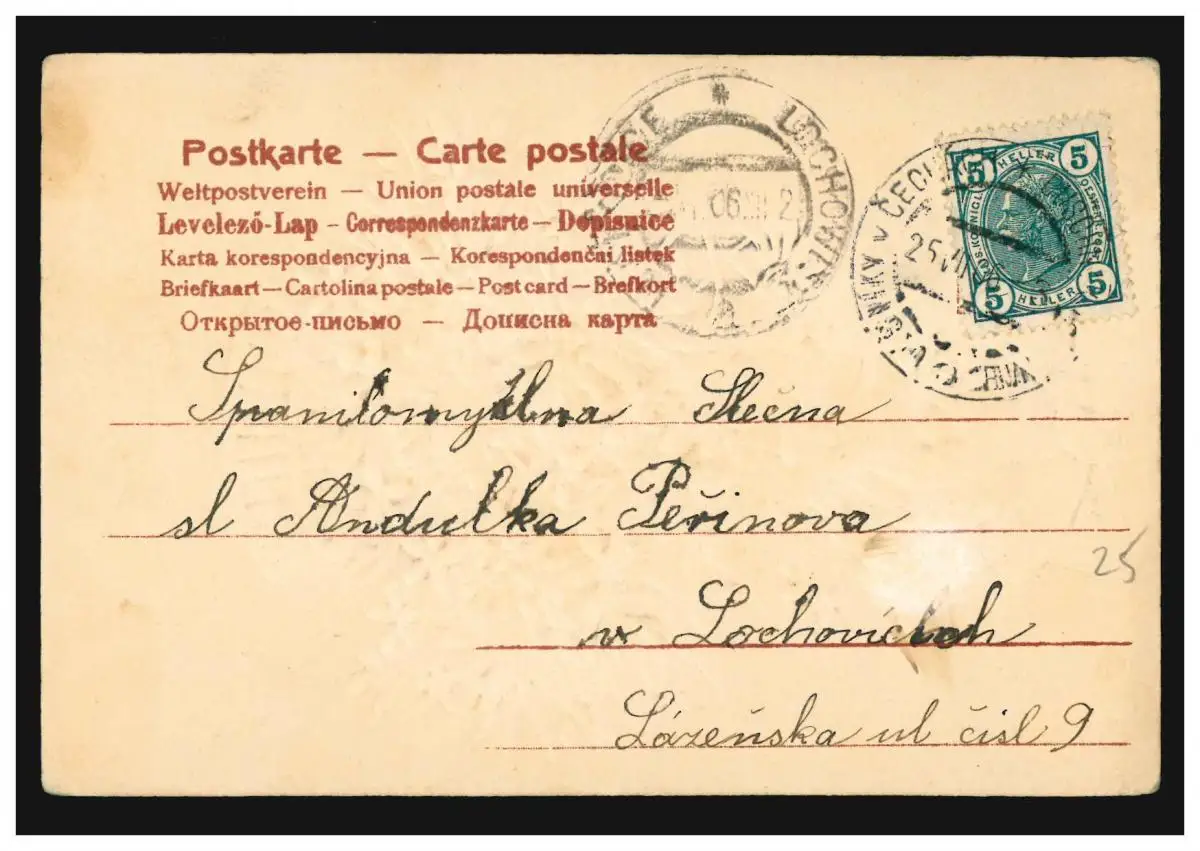 Postkarte — Carte postale
Weltpostverein — Union postale universelle
Levelező-Lap – Correspondenzkarte – Dopisnice
Karta korespondencyjna – Korespondenčni listek
Briefkaart – Cartolina postale – Post card – Brefkort
Открытое письмо — Дописна карта
LOCHOWITZ
06 XII 2
ČECH
25
5 HELLER 5
5 HELLER 5
Spanilomyslna Slečna
sl Andulka Peřinova
v Lochovicích
25
Lázeňska ul čisl 9